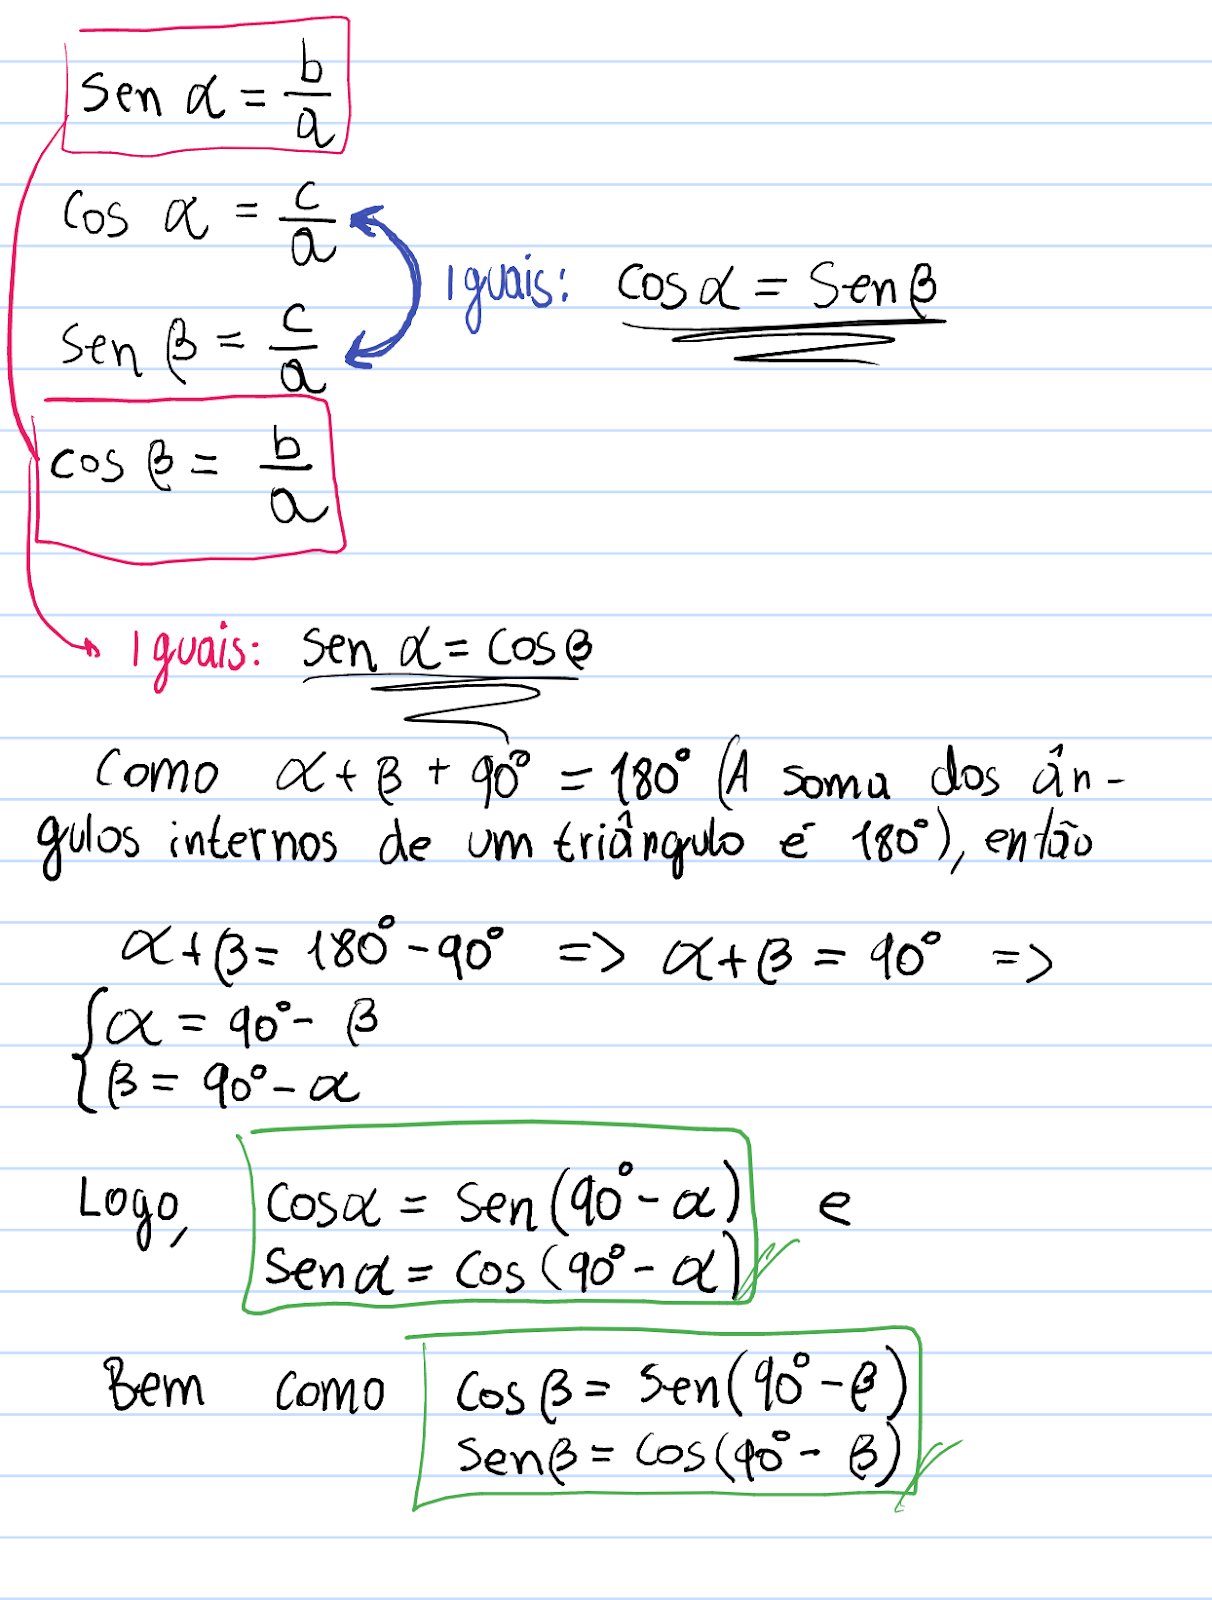 sen α = b/a
cos α = c/a
Iguais: cos α = sen β
sen β = c/a
cos β = b/a
Iguais: sen α = cos β
Como α + β + 90° = 180° (A soma dos ân-
gulos internos de um triângulo é 180°), então
α + β = 180° - 90° => α + β = 90° =>
{ α = 90° - β
β = 90° - α
Logo, cos α = sen (90° - α) e
sen α = cos (90° - α)
Bem como cos β = sen (90° - β)
sen β = cos (90° - β)